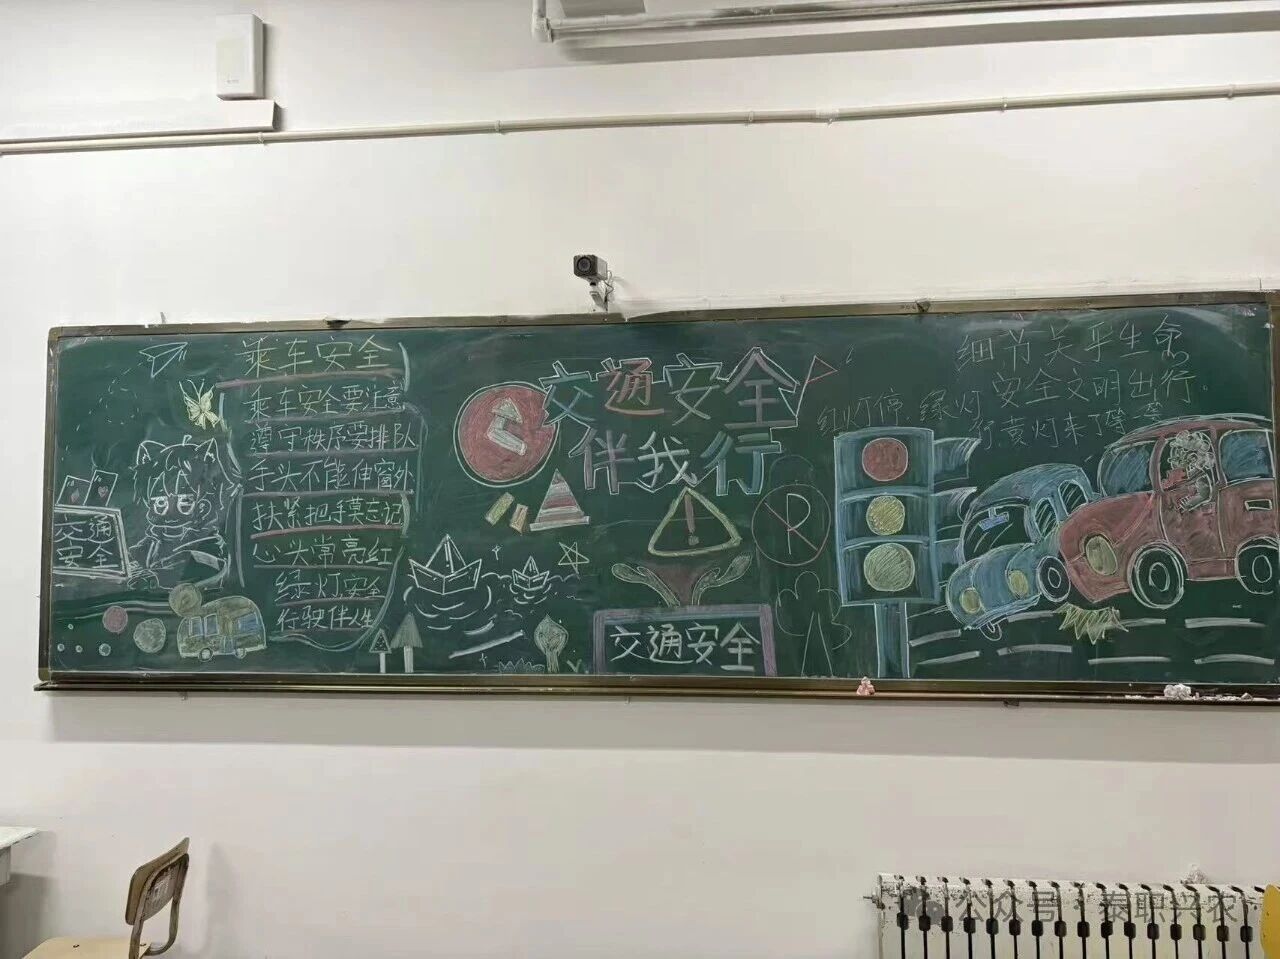 乘车安全
乘车安全要注意
遵守秩序要排队
手头不能伸窗外
扶紧把手莫忘记
心头常亮红
绿灯,安全
行驶伴人生
交通
安全
交通安全
伴我行
交通安全
细节关乎生命
安全文明出行。
红灯停.绿灯
行.黄灯来了等一等
R
公众号·泰职兴农